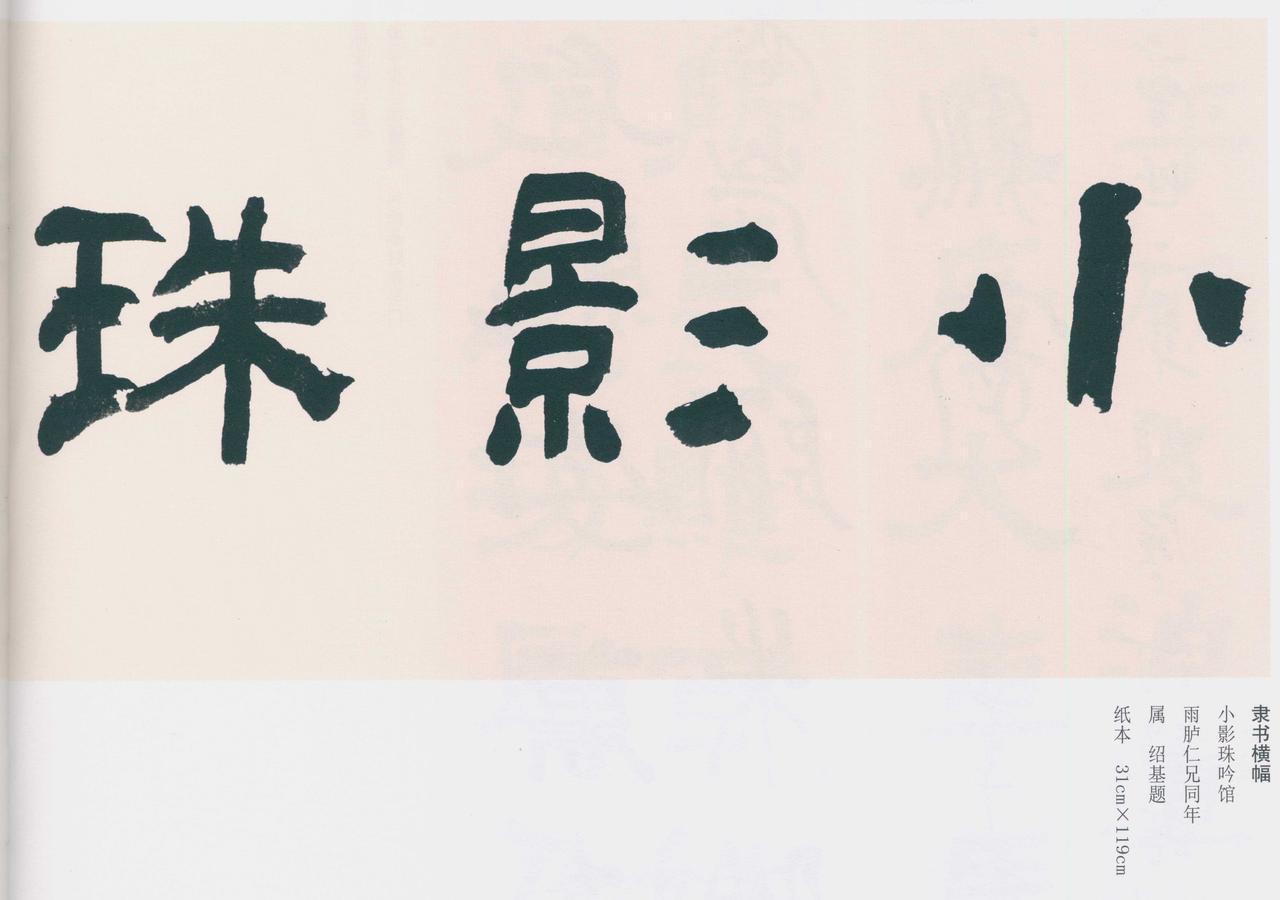 小影珠
隶书横幅
小影珠吟馆
雨胪仁兄同年
属 绍基题
纸本 31cm×119cm